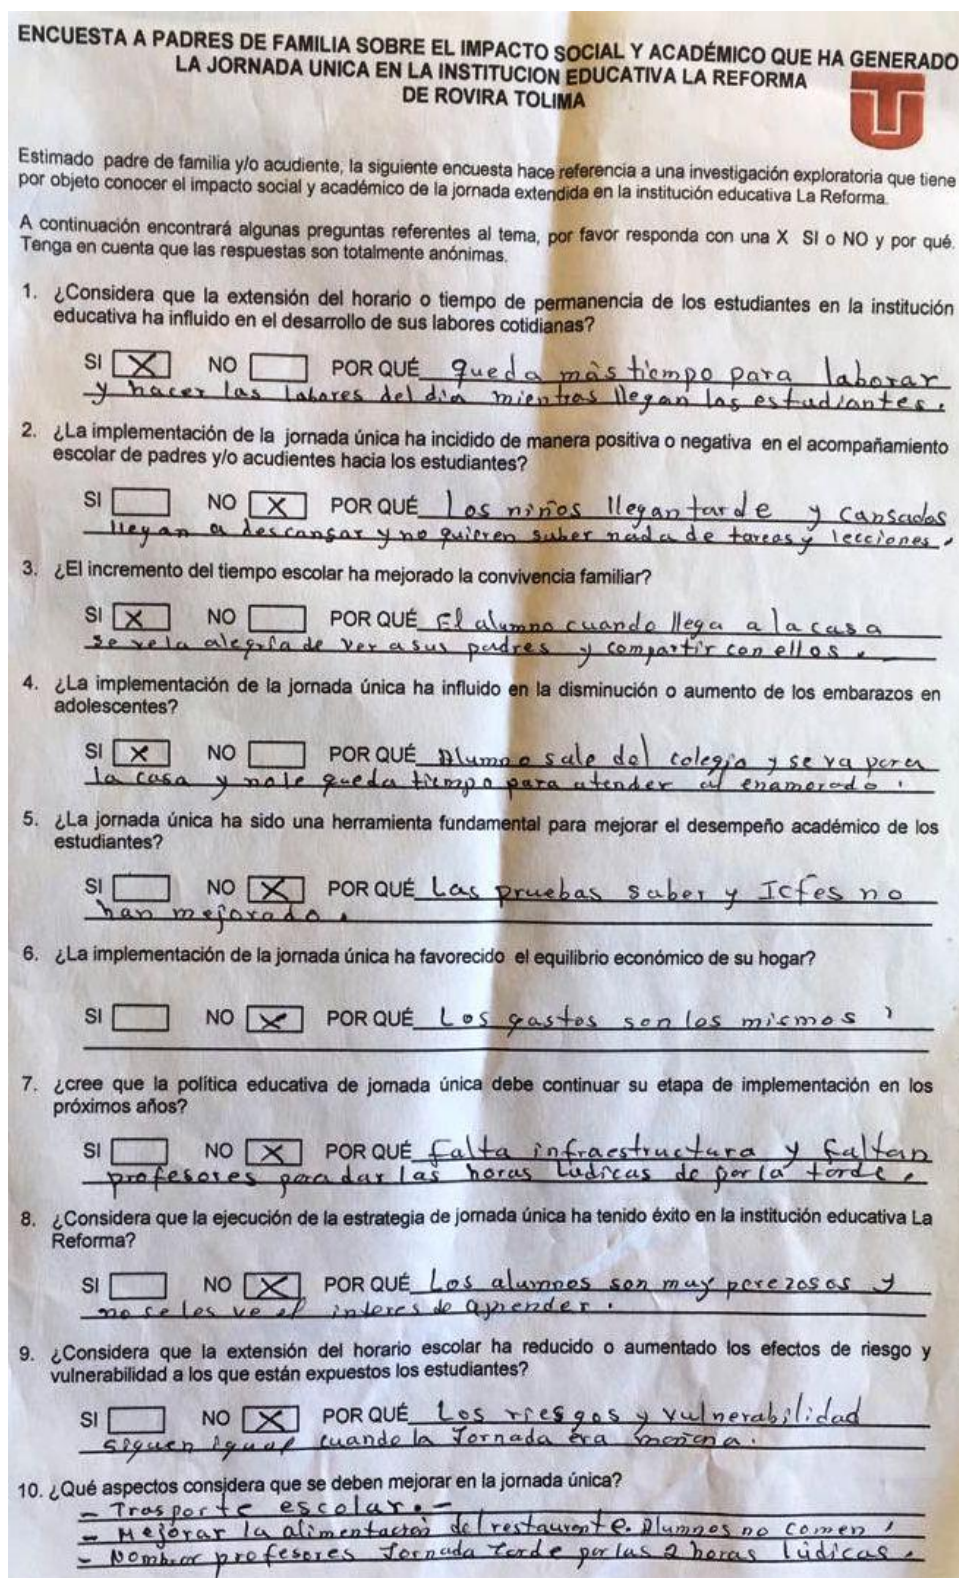 ENCUESTA A PADRES DE FAMILIA SOBRE EL IMPACTO SOCIAL Y ACADÉMICO QUE HA GENERADO
LA JORNADA UNICA EN LA INSTITUCION EDUCATIVA LA REFORMA
DE ROVIRA TOLIMA
Estimado padre de familia y/o acudiente, la siguiente encuesta hace referencia a una investigación exploratoria que tiene
por objeto conocer el impacto social y académico de la jornada extendida en la institución educativa La Reforma.
A continuación encontrará algunas preguntas referentes al tema, por favor responda con una X SI o NO y por qué.
Tenga en cuenta que las respuestas son totalmente anónimas.
1. ¿Considera que la extensión del horario o tiempo de permanencia de los estudiantes en la institución
educativa ha influido en el desarrollo de sus labores cotidianas?
SI X NO POR QUÉ queda más tiempo para laborar
y hacer las labores del día mientras llegan los estudiantes.
2. ¿La implementación de la jornada única ha incidido de manera positiva o negativa en el acompañamiento
escolar de padres y/o acudientes hacia los estudiantes?
SI NO X POR QUÉ Los niños llegan tarde y cansados
llegan a descansar y no quieren saber nada de tareas y lecciones.
3. ¿El incremento del tiempo escolar ha mejorado la convivencia familiar?
SI X NO POR QUÉ El alumno cuando llega a la casa
se ve la alegría de ver a sus padres y compartir con ellos.
4. ¿La implementación de la jornada única ha influido en la disminución o aumento de los embarazos en
adolescentes?
SI X NO POR QUÉ Alumno sale del colegio y se va para
la casa y no le queda tiempo para atender al enamorado.
5. ¿La jornada única ha sido una herramienta fundamental para mejorar el desempeño académico de los
estudiantes?
SI NO X POR QUÉ Las pruebas saber y Icfes no
han mejorado.
6. ¿La implementación de la jornada única ha favorecido el equilibrio económico de su hogar?
SI NO X POR QUÉ Los gastos son los mismos
7. ¿cree que la política educativa de jornada única debe continuar su etapa de implementación en los
próximos años?
SI NO X POR QUÉ falta infraestructura y faltan
profesores para dar las horas lúdicas de por la tarde.
8. ¿Considera que la ejecución de la estrategia de jornada única ha tenido éxito en la institución educativa La
Reforma?
SI NO X POR QUÉ Los alumnos son muy perezosos y
no se les ve el interes de aprender.
9. ¿Considera que la extensión del horario escolar ha reducido o aumentado los efectos de riesgo y
vulnerabilidad a los que están expuestos los estudiantes?
SI NO X POR QUÉ Los riesgos y vulnerabilidad
siguen igual cuando la Jornada era mañana.
10. ¿Qué aspectos considera que se deben mejorar en la jornada única?
- Trasporte escolar. -
- Mejorar la alimentación del restaurante. Alumnos no comen
- Nombrar profesores Jornada tarde por las 2 horas lúdicas.